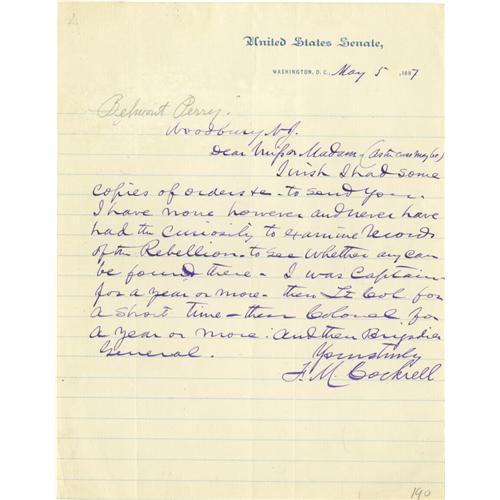 United States Senate,
WASHINGTON, D.C., May 5, 1887
Belmont Perry.
Woodbury N.J.
Dear Miss or Madam (as the case may be)
I wish I had some
copies of orders &c - to send you.
I have none however and never have
had the curiosity to examine records
of the Rebellion - to see whether any can
be found there - I was Captain
for a year or more - then Lt Col for
a short time - then Colonel for
a year or more: and then Brigadier
General.
Yours truly
F. M. Cockrell
190